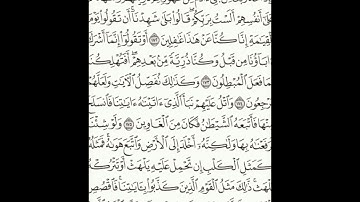 عَلَىٰٓ أَنفُسِهِمْ أَلَسْتُ بِرَبِّكُمْ قَالُوا۟ بَلَىٰ شَهِدْنَآ أَن تَقُولُوا۟ يَوْمَ
ٱلْقِيَٰمَةِ إِنَّا كُنَّا عَنْ هَٰذَا غَٰفِلِينَ ١٧٢ أَوْ تَقُولُوٓا۟ إِنَّمَآ أَشْرَكَ
ءَابَآؤُنَا مِن قَبْلُ وَكُنَّا ذُرِّيَّةً مِّنۢ بَعْدِهِمْ أَفَتُهْلِكُنَا
بِمَا فَعَلَ ٱلْمُبْطِلُونَ ١٧٣ وَكَذَٰلِكَ نُفَصِّلُ ٱلْءَايَٰتِ وَلَعَلَّهُمْ
يَرْجِعُونَ ١٧٤ وَٱتْلُ عَلَيْهِمْ نَبَأَ ٱلَّذِىٓ ءَاتَيْنَٰهُ ءَايَٰتِنَا فَٱنسَلَخَ
مِنْهَا فَأَتْبَعَهُ ٱلشَّيْطَٰنُ فَكَانَ مِنَ ٱلْغَاوِينَ ١٧٥ وَلَوْ شِئْنَا
لَرَفَعْنَٰهُ بِهَا وَلَٰكِنَّهُۥٓ أَخْلَدَ إِلَى ٱلْأَرْضِ وَٱتَّبَعَ هَوَىٰهُ
كَمَثَلِ ٱلْكَلْبِ إِن تَحْمِلْ عَلَيْهِ يَلْهَثْ أَوْ تَتْرُكْهُ
يَلْهَث ذَّٰلِكَ مَثَلُ ٱلْقَوْمِ ٱلَّذِينَ كَذَّبُوا۟ بِـَٔايَٰتِنَا فَٱقْصُصِ